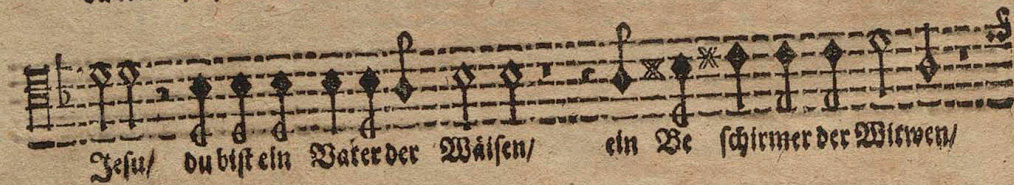 Jesu/ du bist ein Vater der Wäisen/ ein Be schirmer der Witwen/